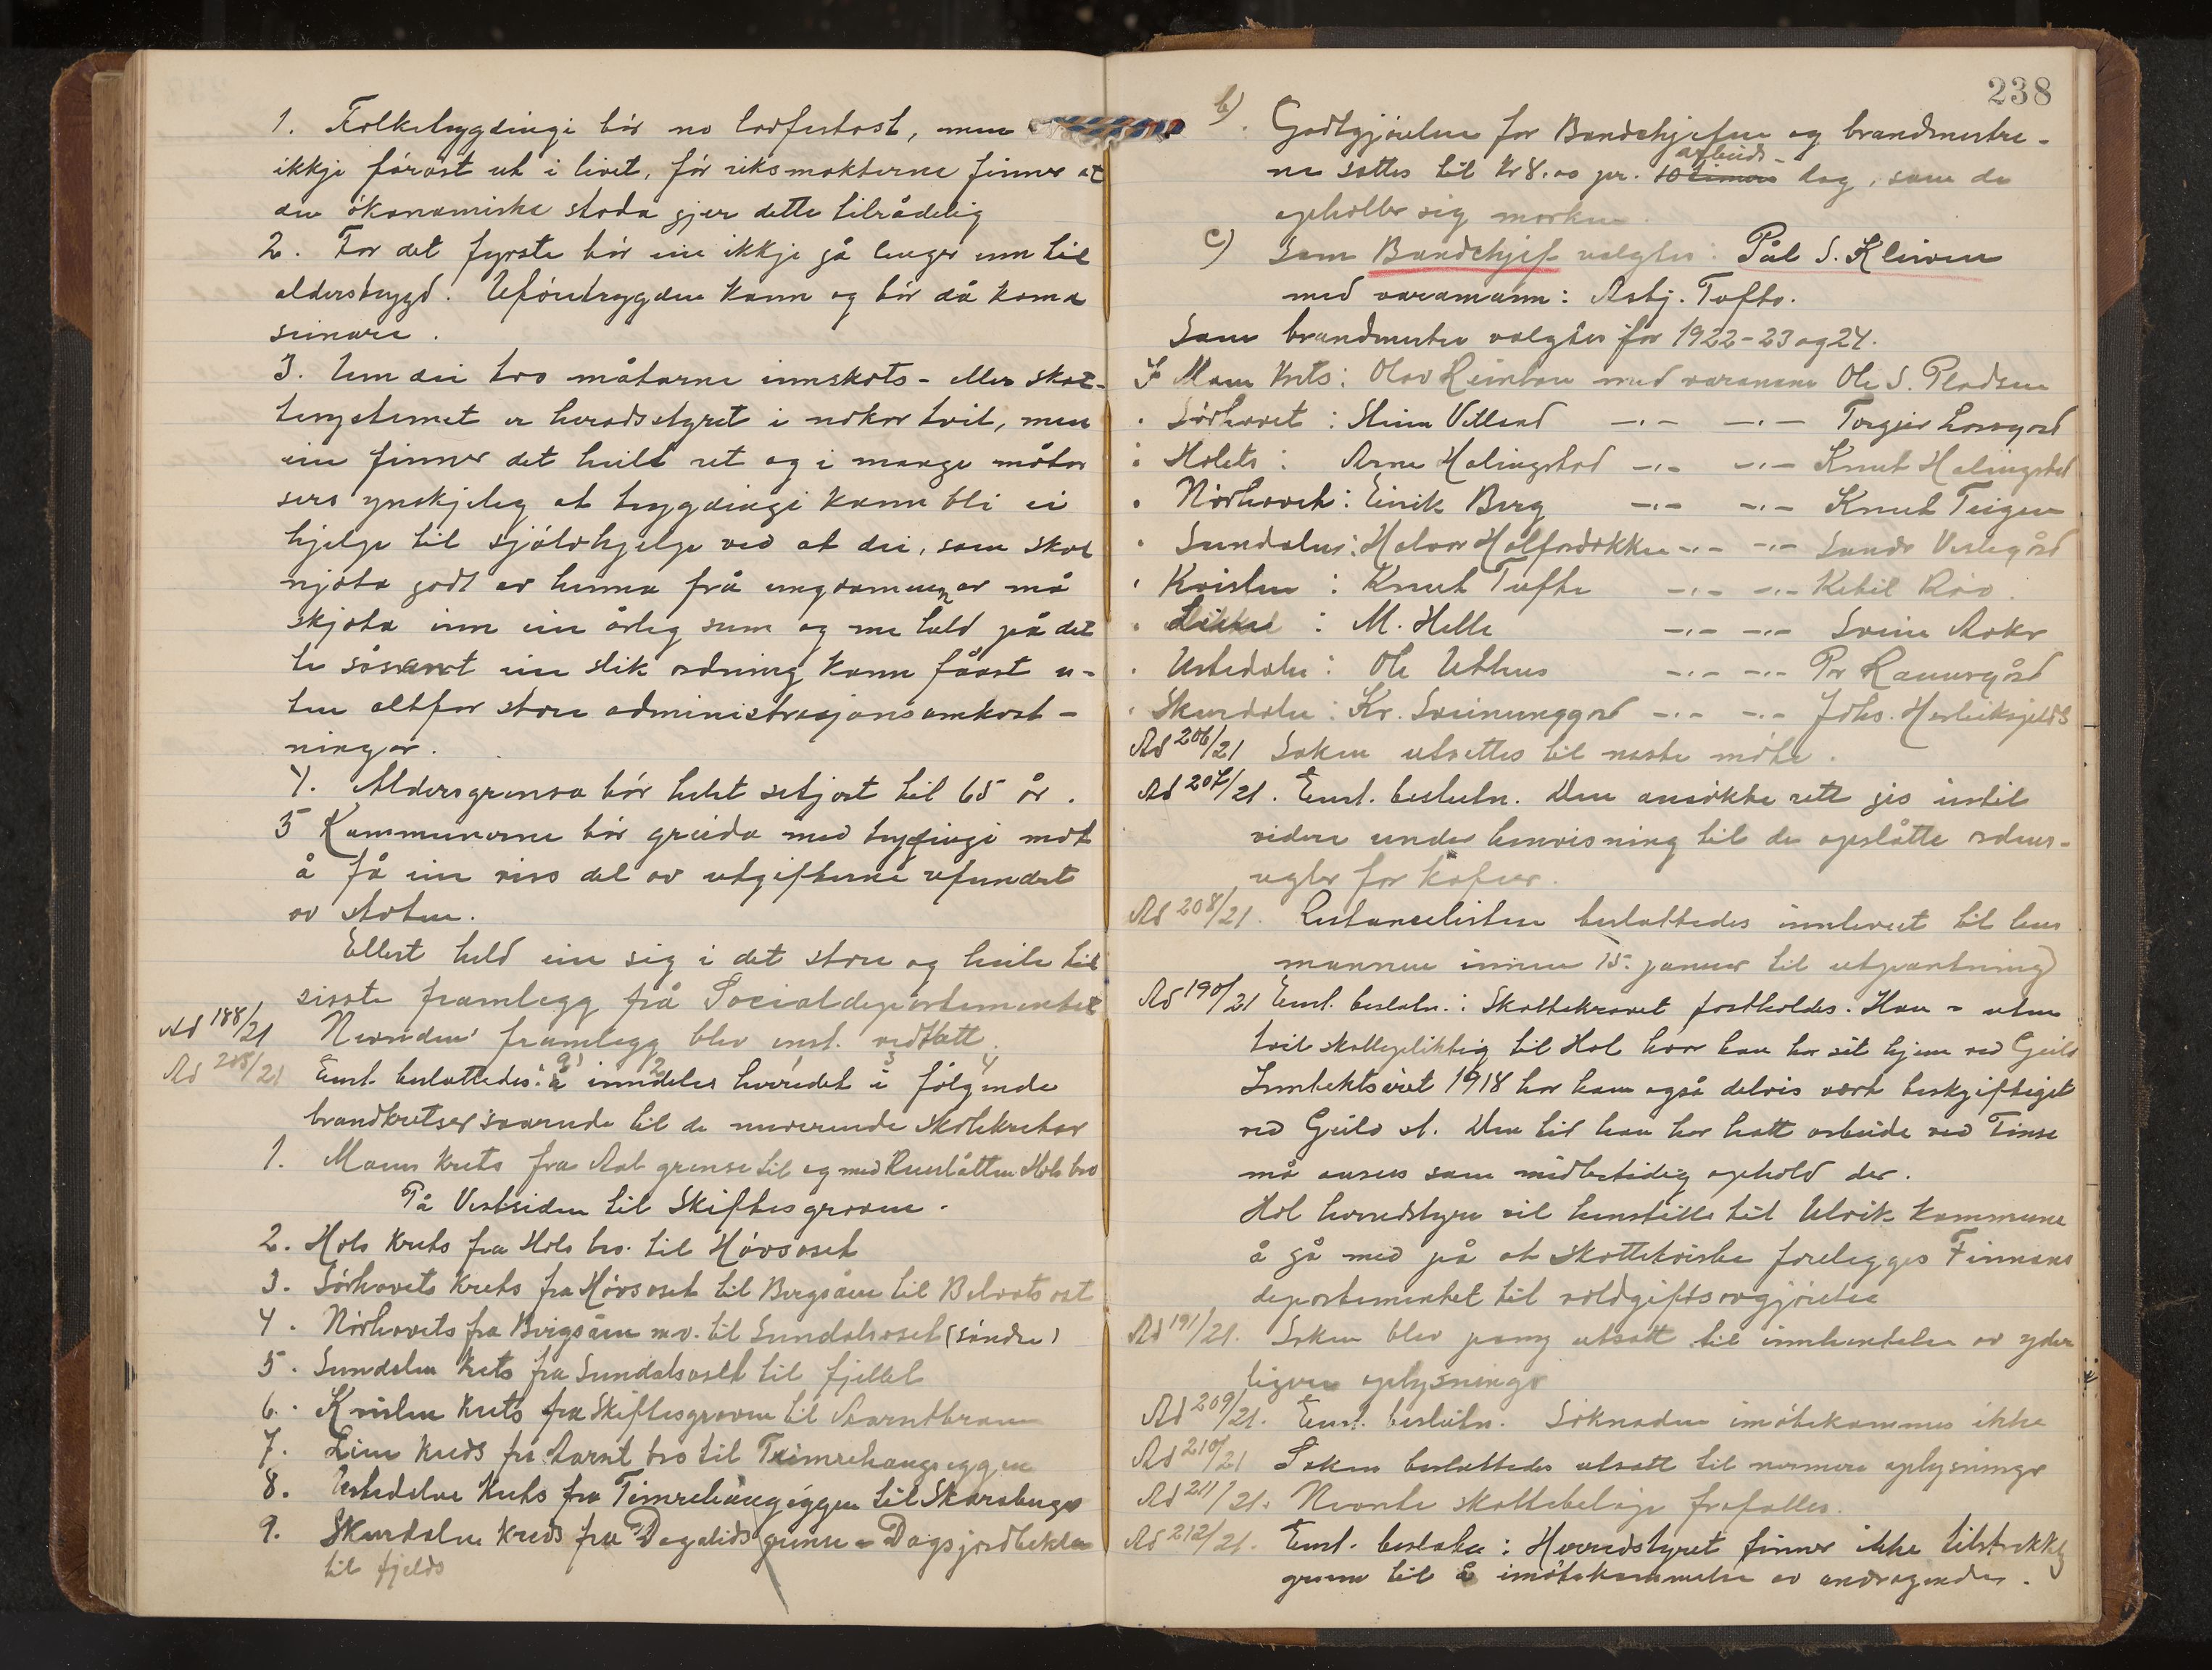 1. Folketrygdingi bör no lovfestast, men
ikkje förast ut i livet, för riksmakterne finner at
den ökonomiske stoda gjer dette tilrådelig
2. For det fyrste bör ein ikkje gå lenger enn til
alderstrygd. Uföretrygden kann og bör då koma
seinare.
3. Um dei tvo måtarne innskots- eller skat-
tesystemet er heradsstyret i nokor tvil, men
ein finner det heilt ret og i mange måtar
sers ynskjeleg at trygdingi kann bli ei
hjelp til sjölvhjelp ved at dei, som skal
njota godt av henna frå ungdommen av må
skjota inn ein årleg sum og me held på det
te såsant ein slik ordning kann fåast u-
ten altfor store administrasjonsomkost-
ningar.
4. Aldersgrensa bör helst setjast til 65 år.
5 Kommunerne bör greida med trygdingi mot
å få ein viss del av utgifterne refundert
av staten.
Ellest held ein sig i det store og heile til
sisste framlegg frå Socialdepartementet
Ad 188/21 Nevnden's framlegg blev enst. vedtatt.
Ad 205/21 Enst. besluttedes: a) å inndeles herredet i fölgende
brandkretser svarende til de nuværende skolekretser
1. Moen krets fra Aal grense til og med Hols bro
På Vestsiden til Skiftesgroven.
2. Hols krets fra Hols bro. til Hövsoset
3. Sörhovets krets fra Hövsoset til Bergsåen til
4. Nörhovets fra Bergsåen m.v. til Sundalsoset (söndre)
5. Sundalen krets fra Sundalsoset til fjellet
6. Kvislen krets fra Skiftesgroven til
7. Lien kreds fra bro til Timrehaugeggen
8. Ustedalen krets fra Timrehaugeggen til
9. Skurdalen kreds fra Dagalids grense - Dagsjordbekken
til fjelds
238
b) Godtgjörelsen for Brandchefen og brandmestre-
ne sattes til kr 8.00 pr. arbeids- 10 timers dag, som de
opholder sig i marken.
c) Som Brandchef valgtes: Pål S. Kleiven
med varamann: Asbj. Tufto.
Som brandmestre valgtes for 1922-23 og 24.
I Moen krets: Olav Reinton med varamann Ole S. Pladsen
" Sörhovet: Stein Villand —"— —"— Torgeir
" Hols: Arne Holingstad —"— —"— Knut Holingstad
" Nörhovet: Eirik Berg —"— —"— Knut Teigen
" Sundalen: Halvor —"— —"— Sander Veslegård
" Kvislen: Knut Tufte —"— —"— Ketil
" : M. Helle —"— —"— Svein Aaker
" Ustedalen: Ole Uthus —"— —"— Per Ramsgård
" Skurdalen: Kr. Sveinunggard —"— —"— Johs.
Ad 206/21 Saken utsettes til næste möte.
Ad 207/21. Enst. besluten. Den ansökte rett gis intil
videre under henvisning til de opslåtte ordens-
regler for kafeer.
Ad 208/21. Restanselisten besluttedes innlevert til lens
mannen innen 15. januar til utpantning
Ad 190/21 Enst. besluten.: Skattekravet fastholdes. Han er uten
tvil skattepliktig til Hol hvor han har sit hjem ved Geilo
Inntektsåret 1918 har han også delvis vært beskjeftiget
ved Geilo st. Den tid han har hatt arbeide ved Finse
må ansees som midlertidig ophold der.
Hol herredstyre vil henstille til Ulvik kommune
å gå med på at skattetvisten forelegges Finnans
departementet til voldgiftsavgjörelse
Ad 191/21. Saken blev påny utsatt til innhentelse av yder
ligere oplysninger
Ad 209/21. Enst. besluten. Söknaden imötekommes ikke
Ad 210/21 Saken besluttedes utsatt til nærmere oplysninger
Ad 211/21. Nevnte skattebelöp frafalles.
Ad 212/21. Enst. besluten: Herredstyret finner ikke tilstrekkelig
grunn til å imötekommelse av andragendet.